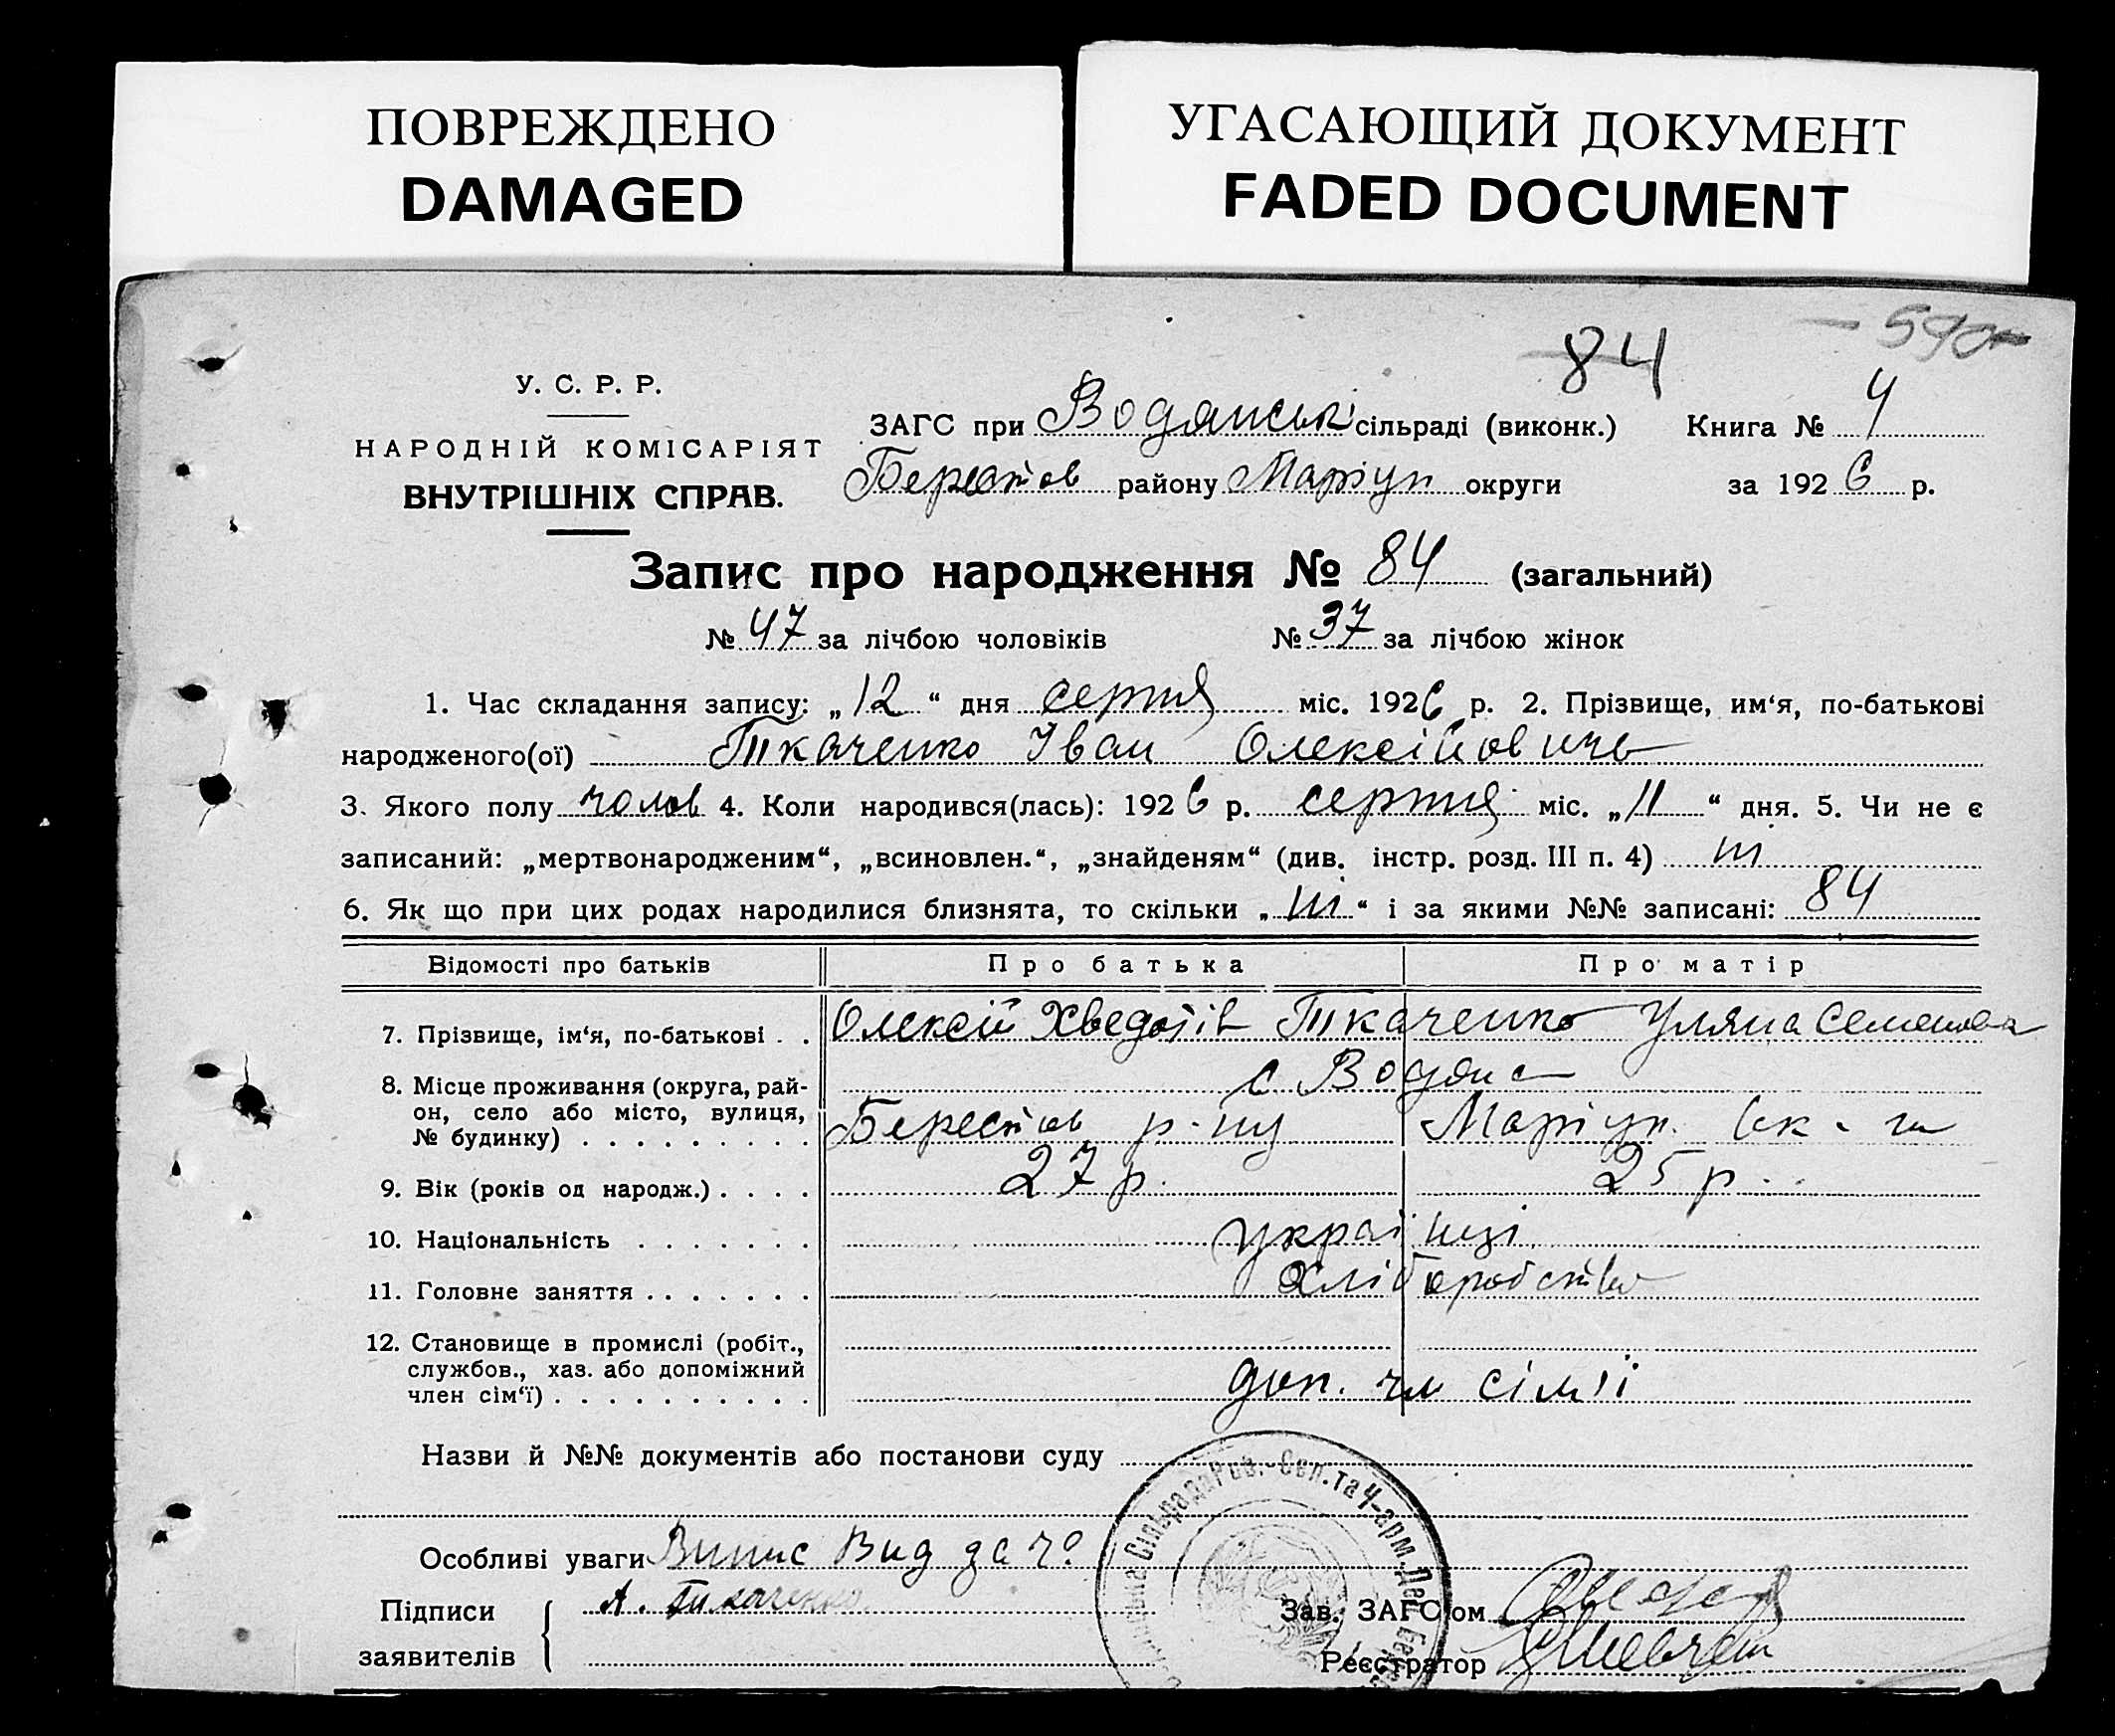 ПОВРЕЖДЕНО
DAMAGED
УГАСАЮЩИЙ ДОКУМЕНТ
FADED DOCUMENT
590
84
У. С. Р. Р.
НАРОДНІЙ КОМІСАРІЯТ
ВНУТРІШНІХ СПРАВ.
ЗАГС при Водянські сільраді (виконк.) Книга № 4
Берестов району Маріуп округи за 1926 р.
Запис про народження № 84 (загальний)
№ 47 за лічбою чоловіків № 37 за лічбою жінок
1. Час складання запису: „12“ дня серпня міс. 1926 р. 2. Прізвище, им‘я, по-батькові
народженого(ої) Ткаченко Іван Олексійовичь
3. Якого полу чолов 4. Коли народився(лась): 1926 р. серпня міс. „11“ дня. 5. Чи не є
записаний: „мертвонародженим“, „всиновлен.“, „знайденям“ (див. інстр. розд. III п. 4) ні
6. Як що при цих родах народилися близнята, то скільки „ні“ і за якими №№ записані: 84
Відомості про батьків Про батька Про матір
7. Прізвище, ім‘я, по-батькові . . Олексій Хведотів Ткаченко Уляна Семенова
8. Місце проживання (округа, рай-
он, село або місто, вулиця,
№ будинку) . . . . . . . . .
с Водяне
Берестов р-ну Маріуп. Ок-ги
9. Вік (років од народж.) . . . . 27 р. 25 р.
10. Національність . . . . . . . українці
11. Головне заняття . . . . . . . хліборобство
12. Становище в промислі (робіт.,
службов., хаз. або допоміжний
член сім‘ї) . . . . . . . . . . доп. чл сім'ї
Назви й №№ документів або постанови суду
Сільрада Роб.-Сел. та Ч-арм. Деп.
Особливі уваги Випис Видадено
Підписи
заявителів
А. Ткаченко
Зав. ЗАГС‘ом
Реєстратор